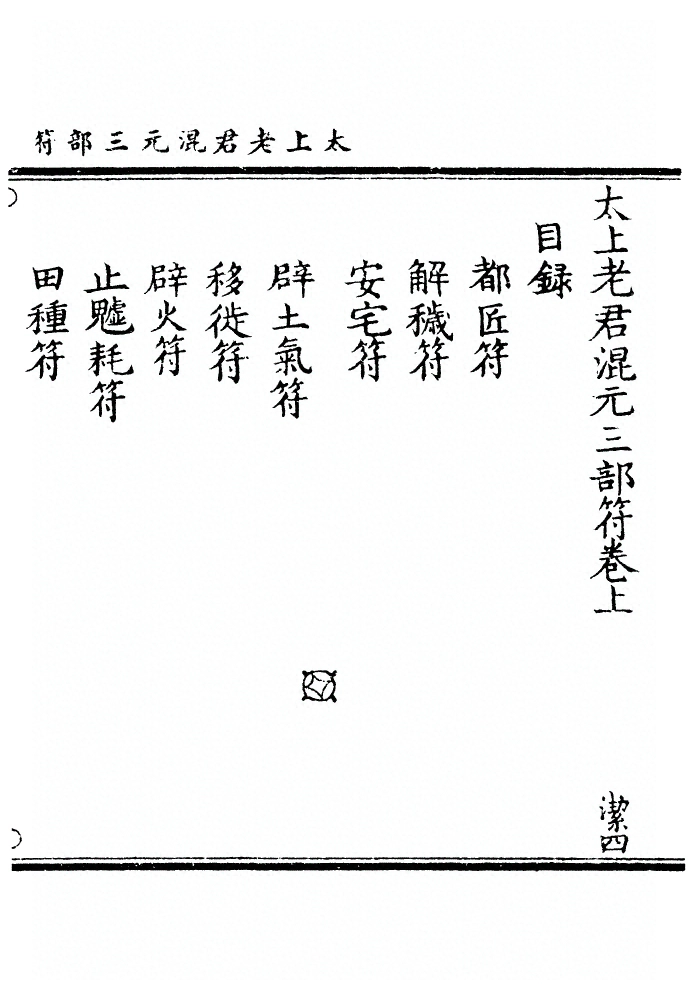 太上老君混元三部符
太上老君混元三部符卷上
潔四
目録
都匠符
解穢符
安宅符
辟土氣符
移徙符
辟火符
止魖耗符
田種符